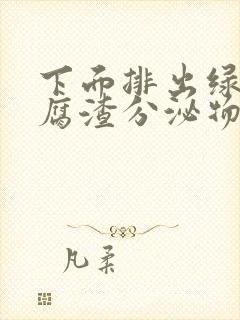 下而排出绿
腐渣分泌物
凡柔